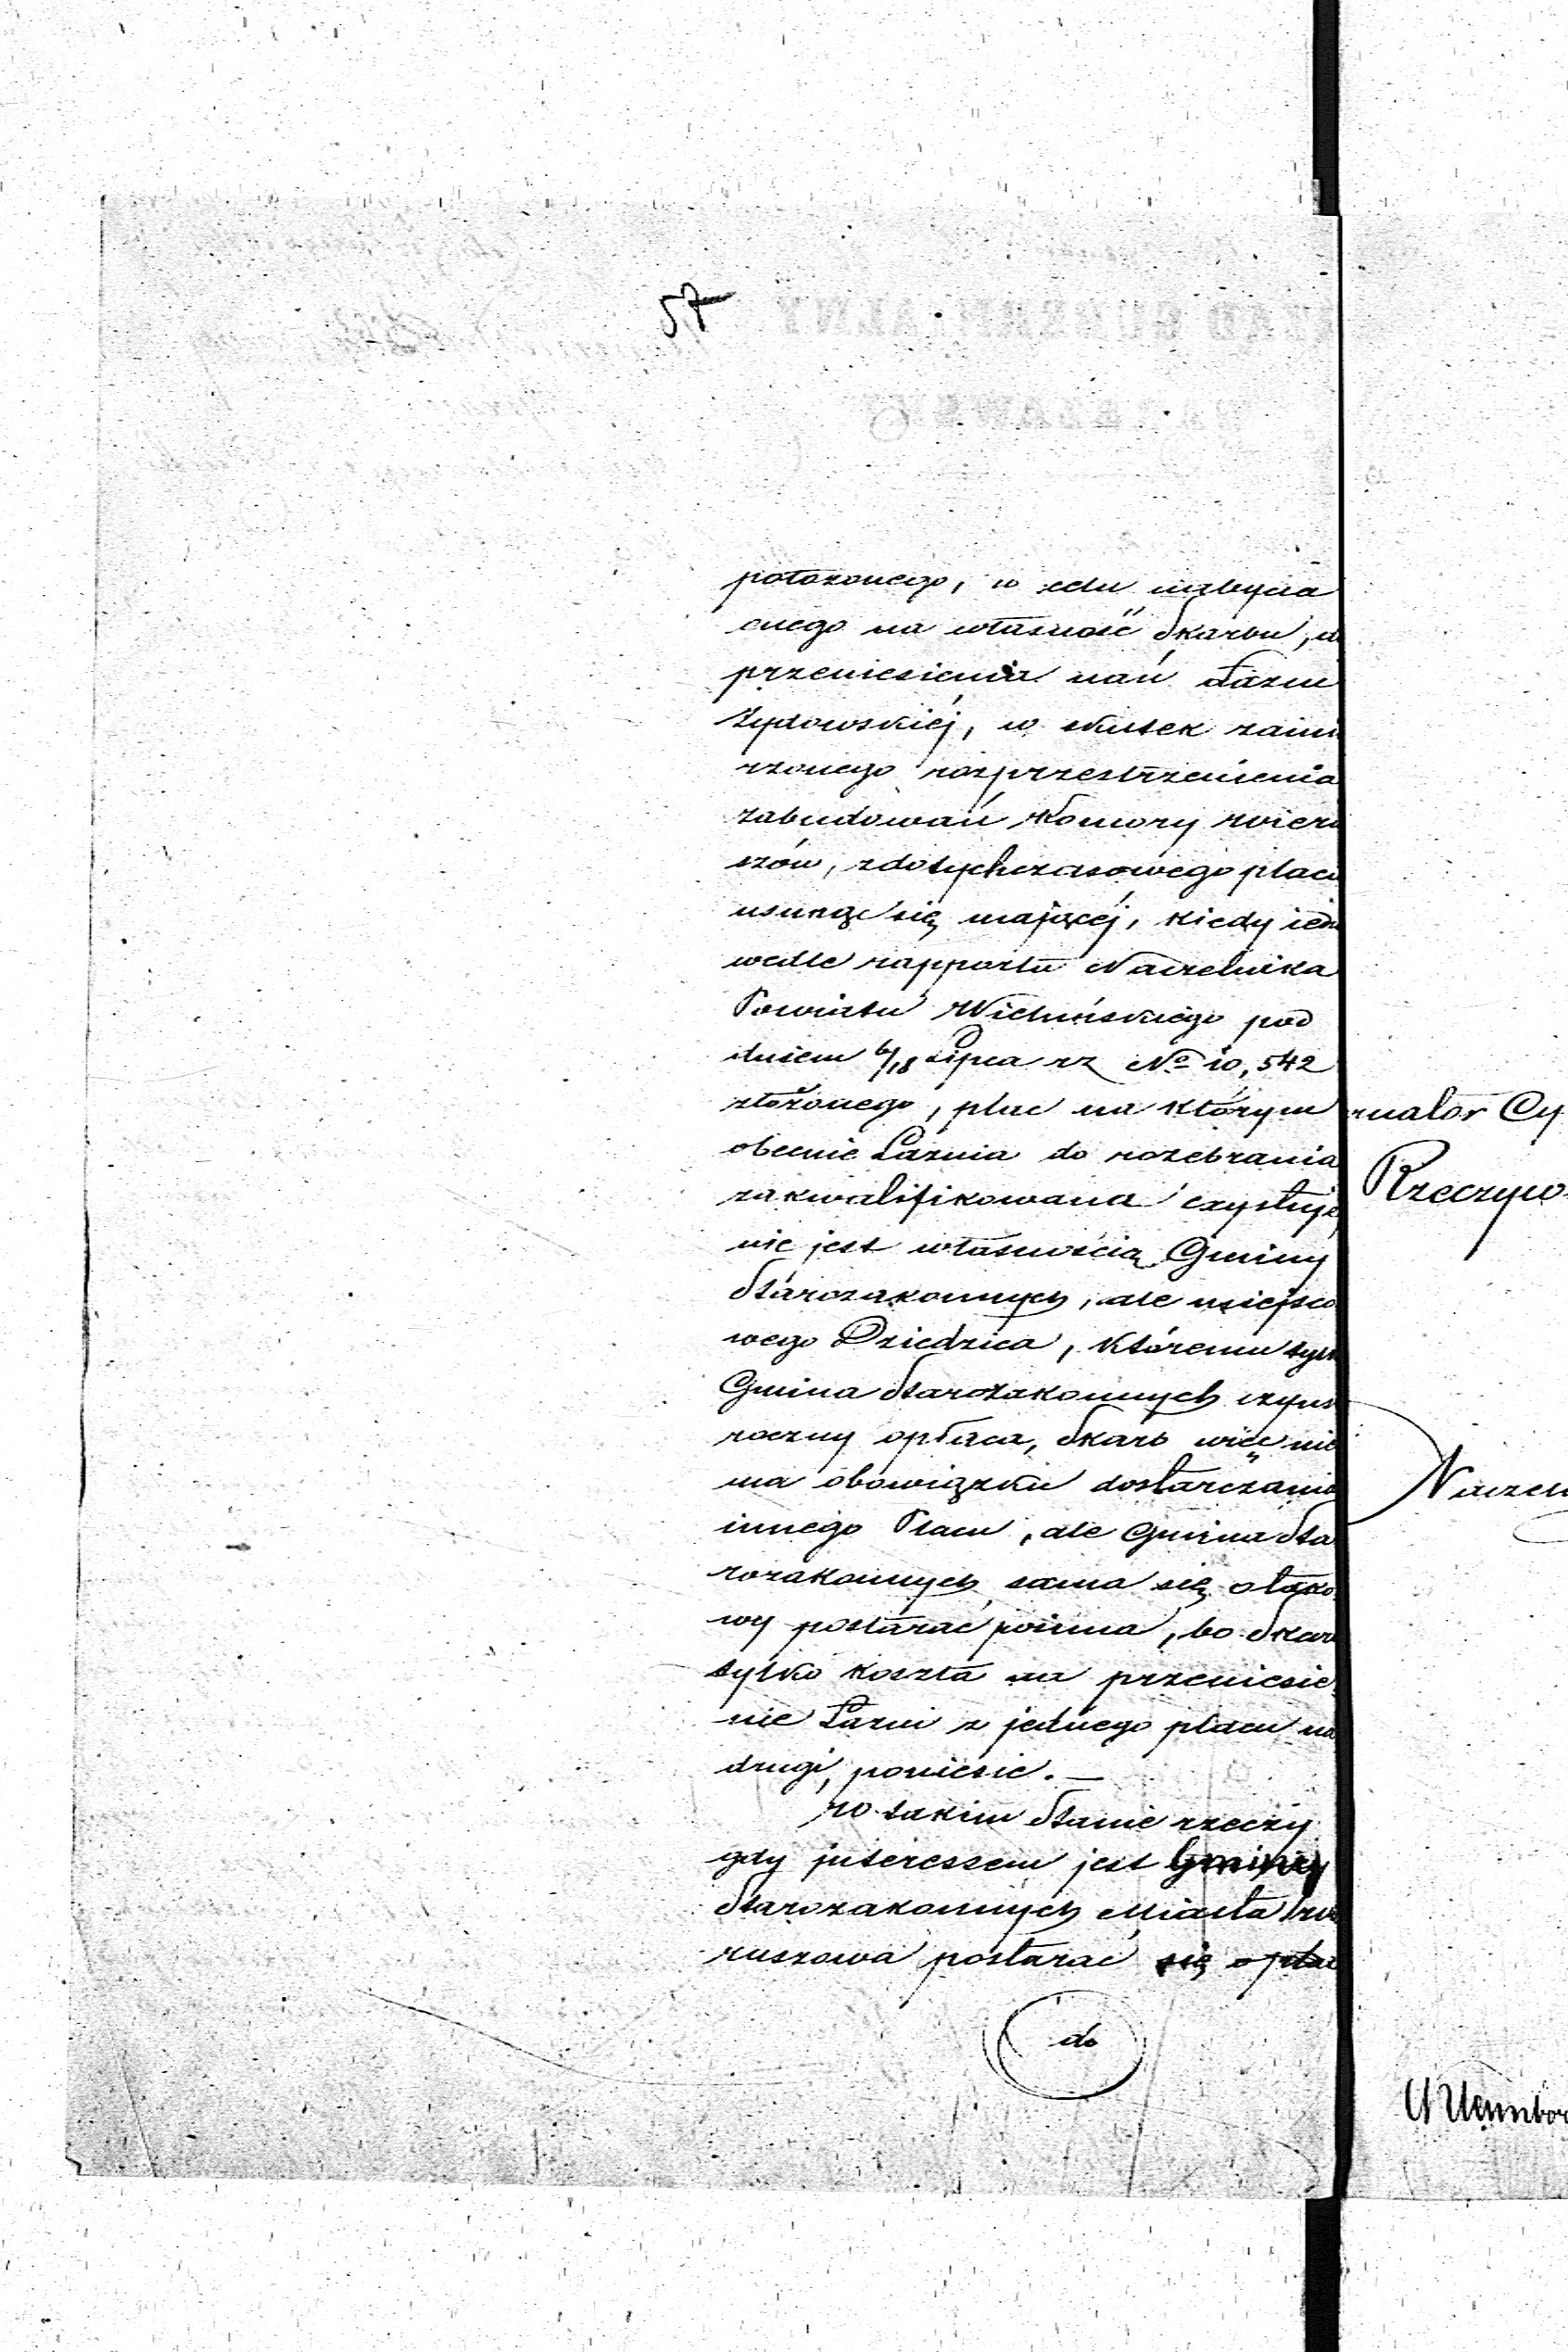 57
położonego, w celu nabycia
onego na własność Skarbu, a
przeniesienia nań Łaźni
Żydowskiéj, w skutek zami
rzonego rozprzestrzenienia
zabudowań Komory Wieru
szów, z dotychczasowego placu
usunąć się mającéj, kiedy
wedle rapportu Naczelnika
Powiatu Wieluńskiego pod
dniem 6/18 Lipca rz No 10,542
złożonego, plac na którym
obecnie Łaźnia do rozebrania
zakwalifikowana exystuje,
nie jest własnością Gminy
Starozakonnych, ale miejsco
wego Dziedzica, któremu
Gmina Starozakonnych czynsz
roczny opłaca, Skarb więc nie
ma obowiązku dostarczania
innego Placu, ale Gmina Sta
rozakonnych sama się o tako
wy postarać powinna, bo Skarb
tylko koszta na przeniesie
nie Łaźni z jednego placu na
drugi, poniesie. —
W takim Stanie rzeczy
gdy interessem jest Gminy
Starozakonnych Miasta
ruszowa postarać się o plac
do
Rzeczywi
Naczel